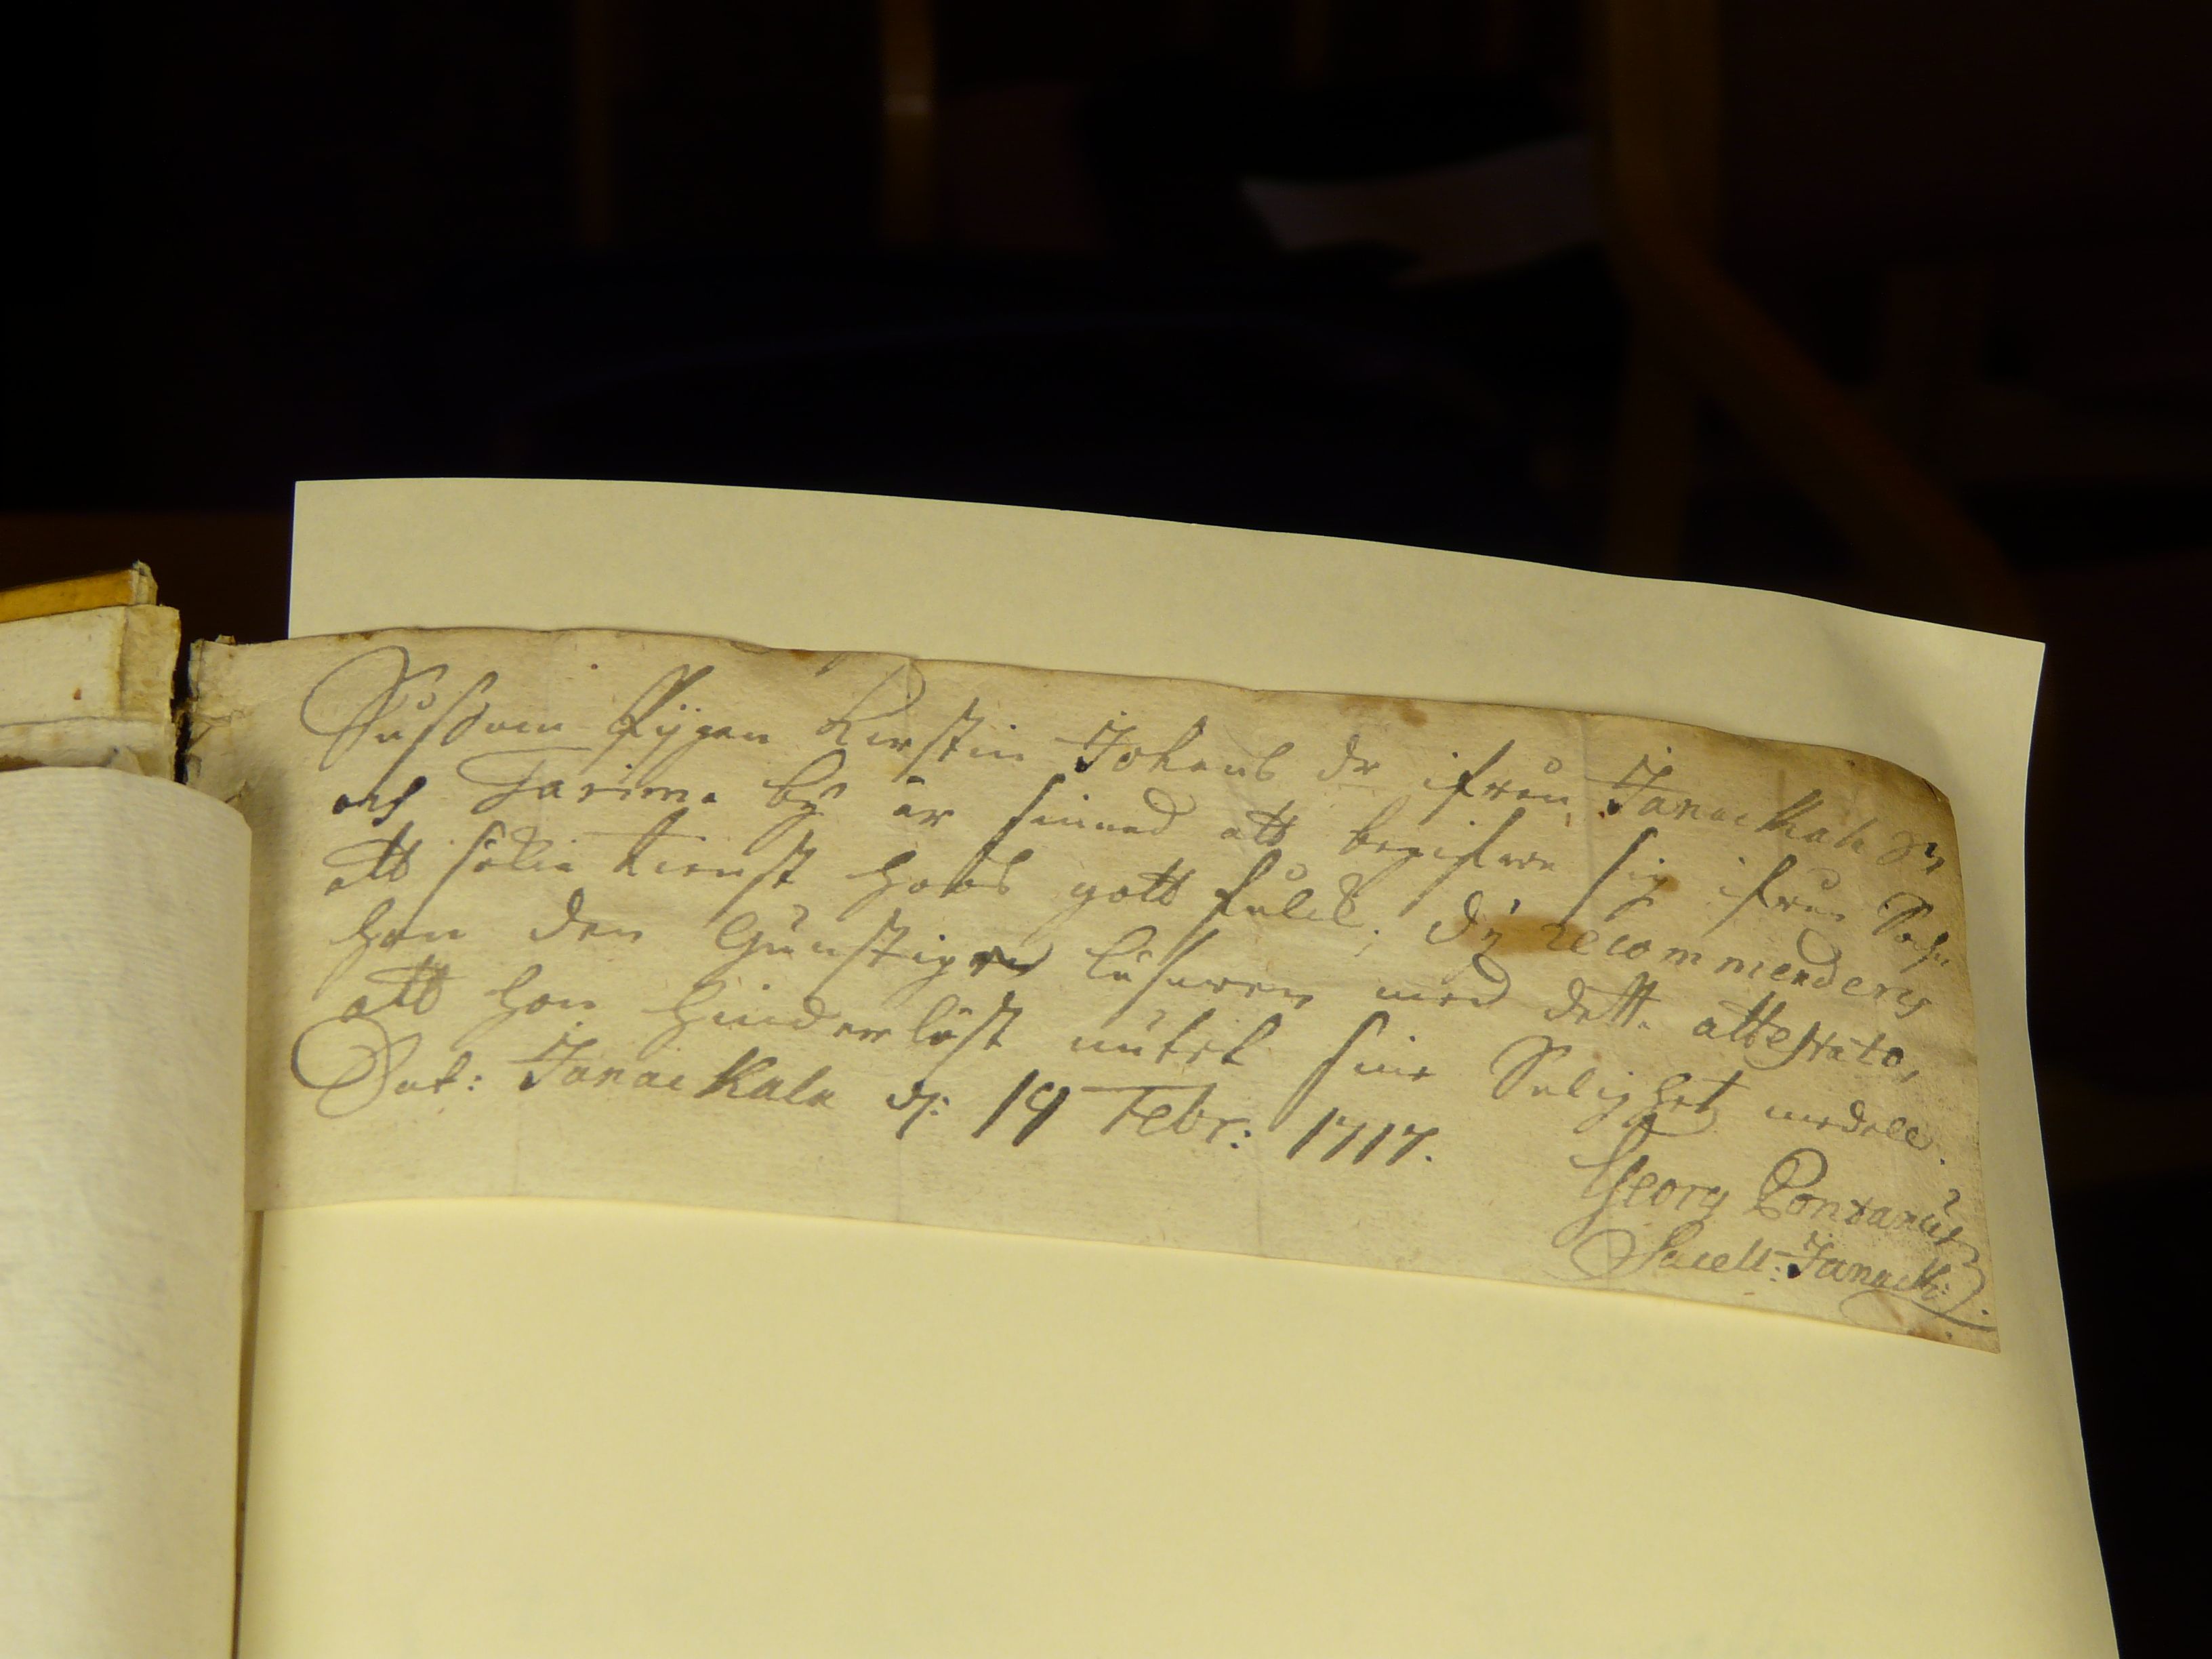 Såssom Pijgan Kirstin Johans dr ifrån Janackala Sn
och Tarima by är sinnad att begifwa sig ifrån Sochn
att sökia tienst hoos gott folck; dy recommenderas
hon den Gunstige läsaren med detta attestato,
att hon hinderlöst niutit sine Salighetz medell.
Dat: Janackala d: 19 Febr: 1717.
Georg Pontanus
Sacell: Janack: